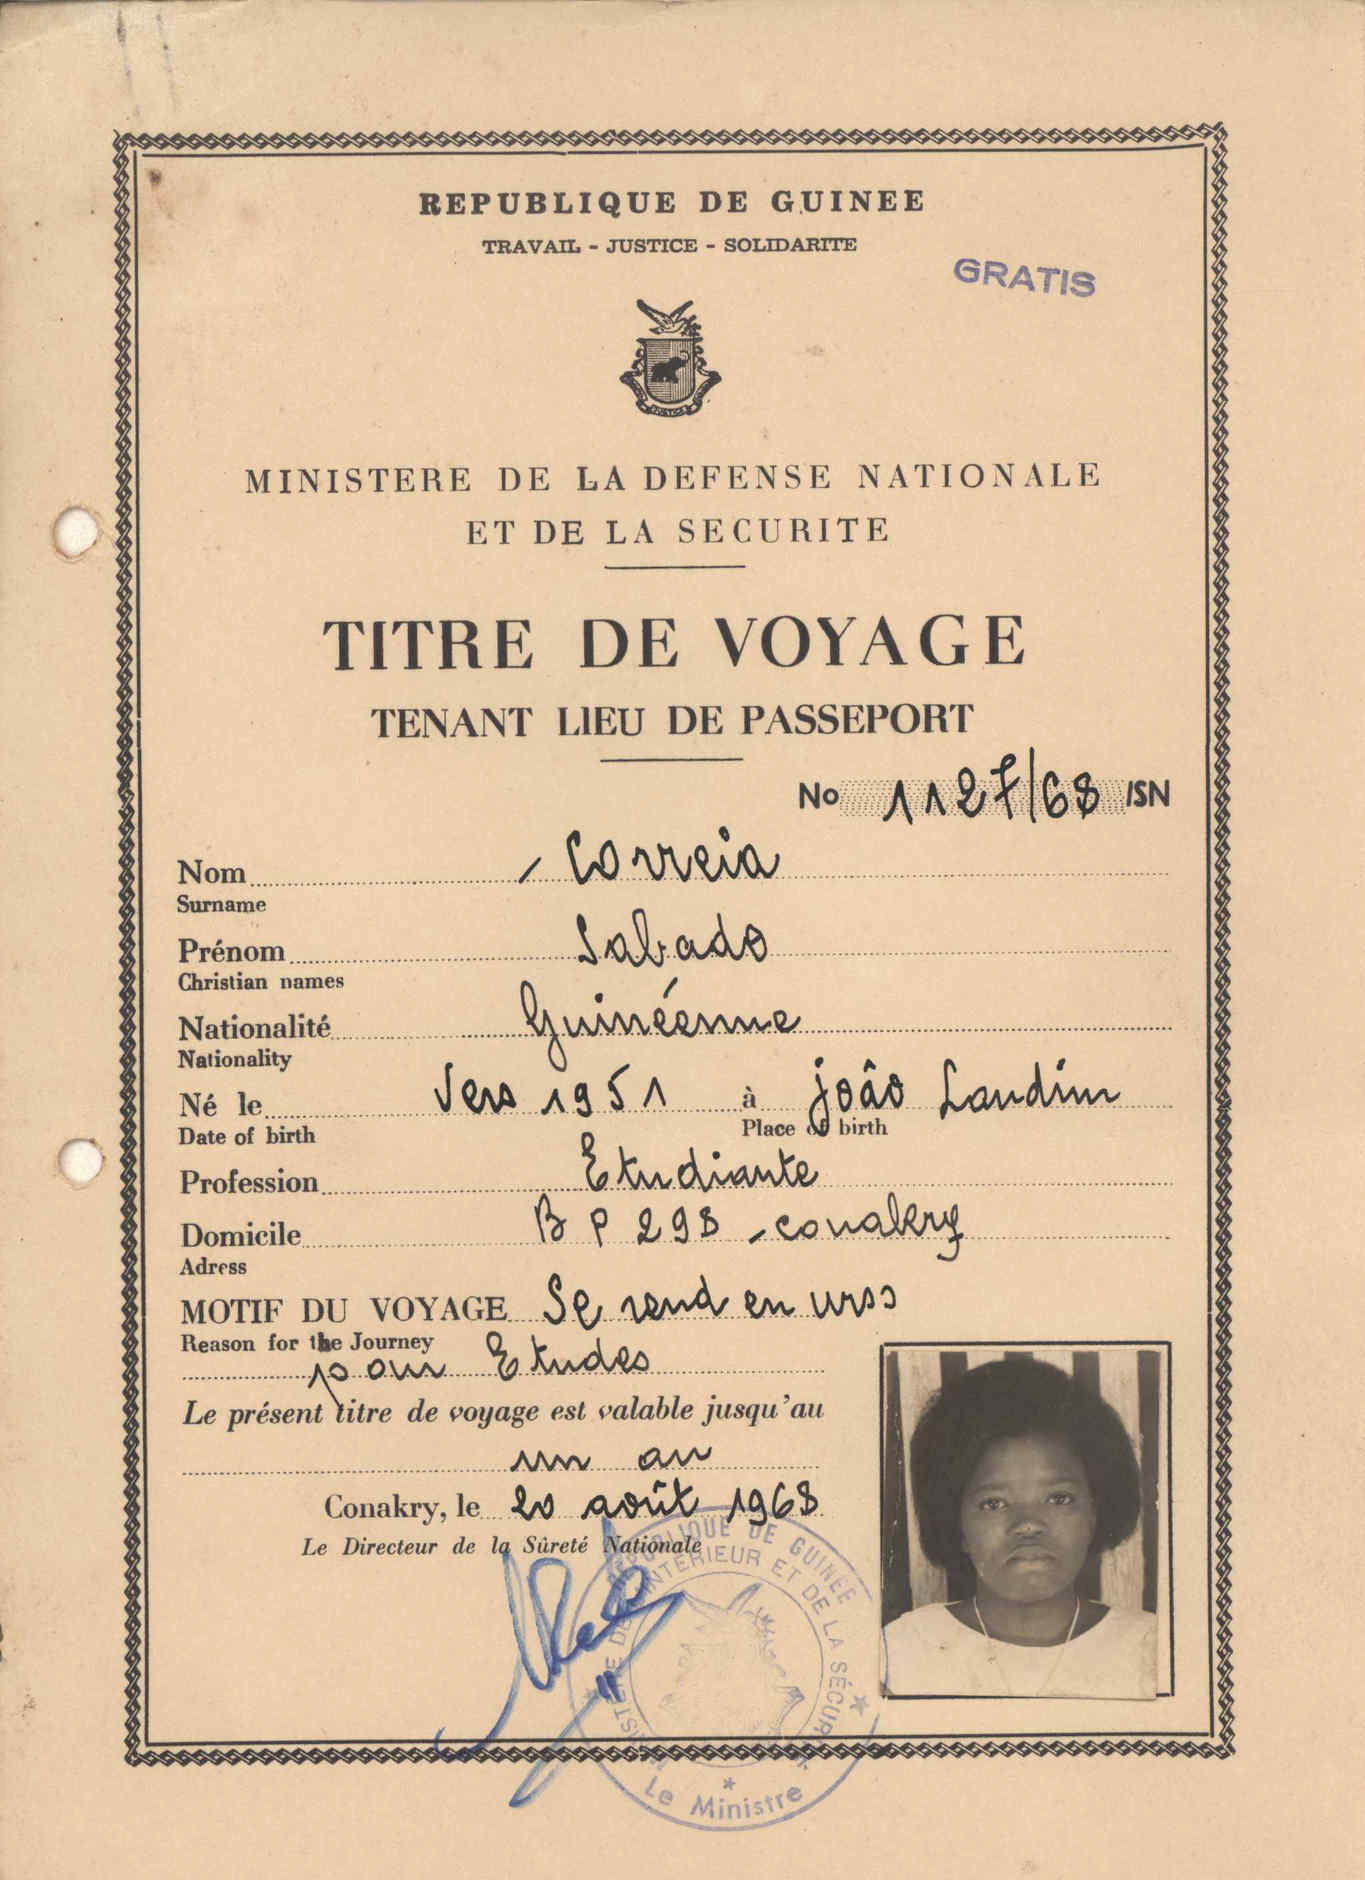 REPUBLIQUE DE GUINEE
TRAVAIL - JUSTICE - SOLIDARITE
GRATIS
MINISTERE DE LA DEFENSE NATIONALE
ET DE LA SECURITE
TITRE DE VOYAGE
TENANT LIEU DE PASSEPORT
No 1127/68 /SN
Nom - Correia
Surname
Prénom Sabado
Christian names
Nationalité Guinéenne
Nationality
Né le Vers 1951 à João Landim
Date of birth Place of birth
Profession Etudiante
Domicile B P 298 - Conakry
Adress
MOTIF DU VOYAGE Se rend en urss
Reason for the Journey
pour Etudes
Le présent titre de voyage est valable jusqu'au
un an
Conakry, le 20 août 1968
Le Directeur de la Sûreté Nationale
REPUBLIQUE DE GUINEE
MINISTERE DE L'INTERIEUR ET DE LA SÉCURITÉ
Le Ministre